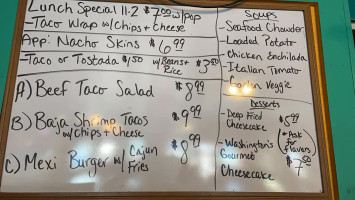 Lunch Special 11-2 $7.00 w/pop
-Taco Wrap w/Chips + Cheese
App: Nacho Skins $6.99
Taco or Tostada $1.50 w/Beans + Rice $3.50
A) Beef Taco Salad $8.99
B) Baja Shrimp Tacos $9.99
w/Chips + Cheese
C) Mexi Burger w/ Cajun Fries $8.99
Soups
-Seafood Chowder
-Loaded Potato
-Chicken Enchilada
-Italian Tomato
Veggie
Desserts
-Deep Fried Cheesecake $5.99
*Ask for flavors
-Washington's
Gourmet $7.50
Cheesecake